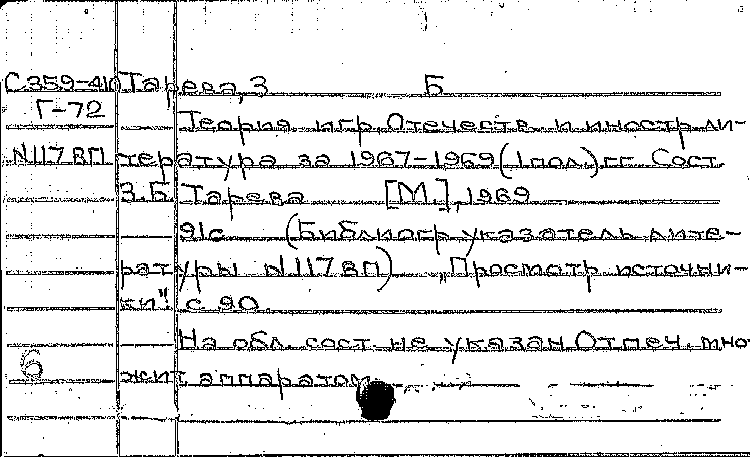 С359-410 Тарева, З Б
Г-72 Теория игр. Отечеств. и иностр ли-
N117ВП тература за 1967-1969 (1 пол.) гг. Сост.
З.Б. Тарева [М.], 1969
91с (Библиогр указатель лите-
ратуры N117ВП) „Просмотр источни-
ки": с 90.
На обл. сост. не указан. Отпеч. мно-
6 жит. аппаратом.